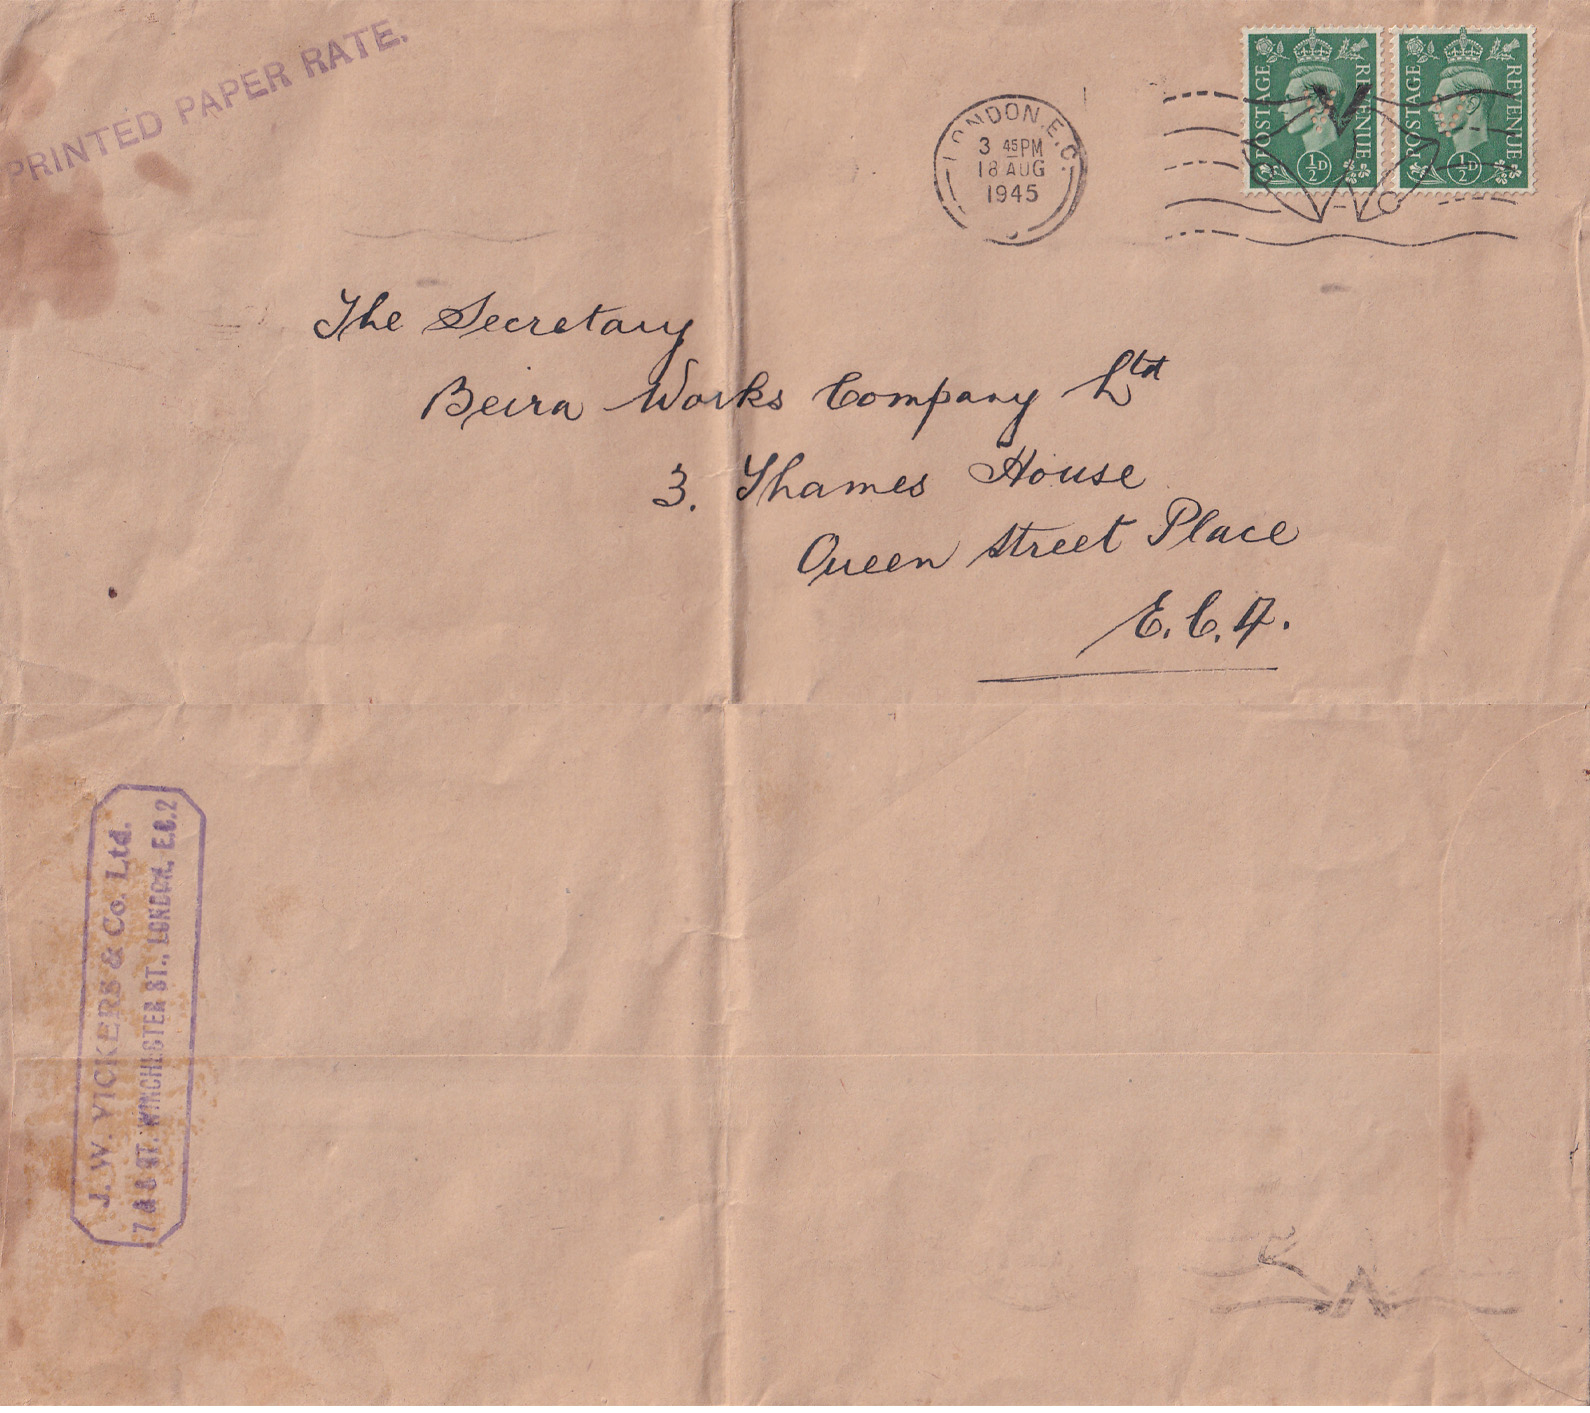 PRINTED PAPER RATE.
POSTAGE REVENUE
½D
POSTAGE REVENUE
½D
LONDON. E.C.
3 45PM
18 AUG
1945
The Secretary
Beira Works Company Ltd
3. Thames House
Queen Street Place
E.C.4.
J. W. VICKERS & Co. Ltd.
7 & 8 GT. WINCHESTER ST., LONDON, E.C.2